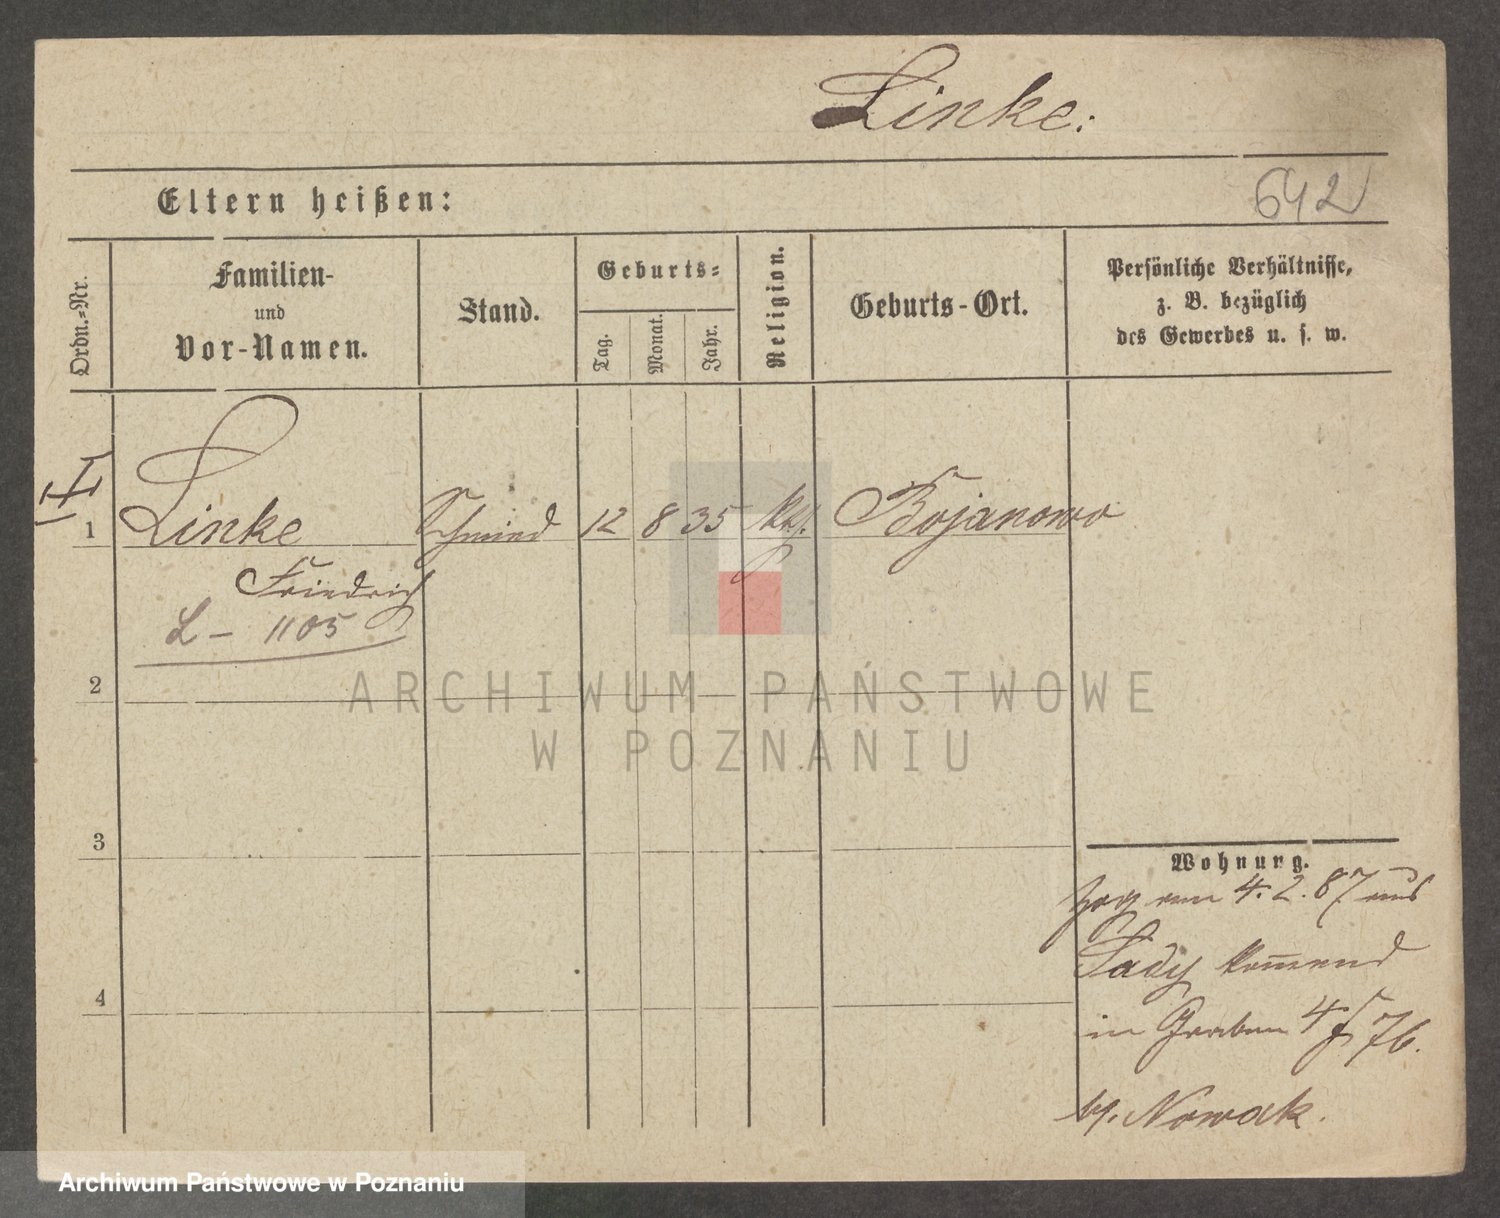 Linke.
Eltern heißen:
642
Ordn.-Nr.
Familien-
und
Vor-Namen.
Stand.
Geburts-
Tag.
Monat.
Jahr.
Religion.
Geburts-Ort.
Persönliche Verhältnisse,
z. B. bezüglich
des Gewerbes u. s. w.
1 Linke Schmied 12 8 35 Bojanowo
Friedrich
L - 1105
2
ARCHIWUM PAŃSTWOWE
W POZNANIU
3
Wohnung.
4. 2. 87 aus
komend
4
in Graben 4
Nowak.
Archiwum Państwowe w Poznaniu